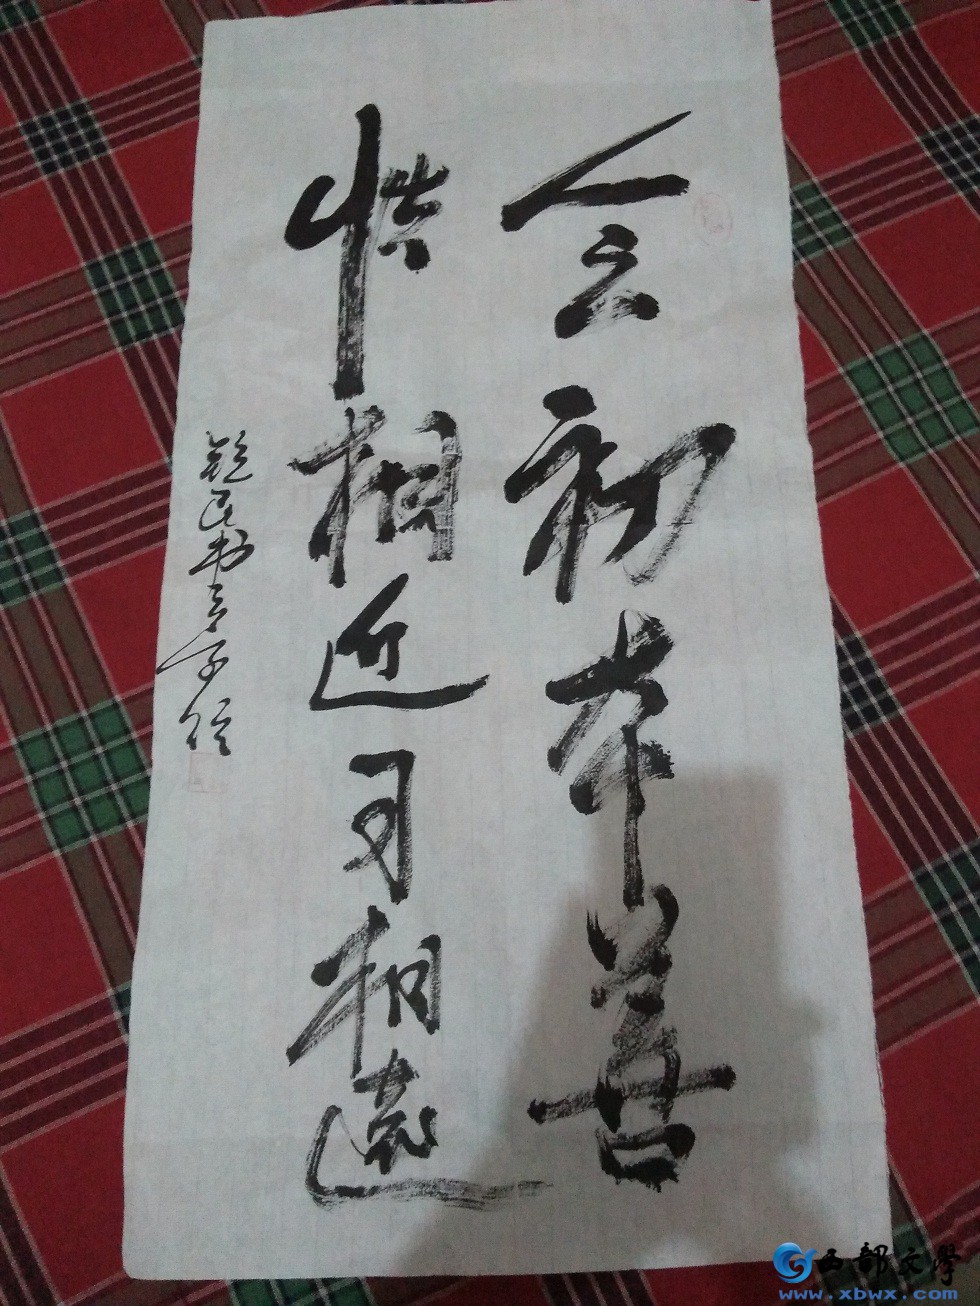 人之初本善
性相近习相遠
西部文學
www.xbwx.com